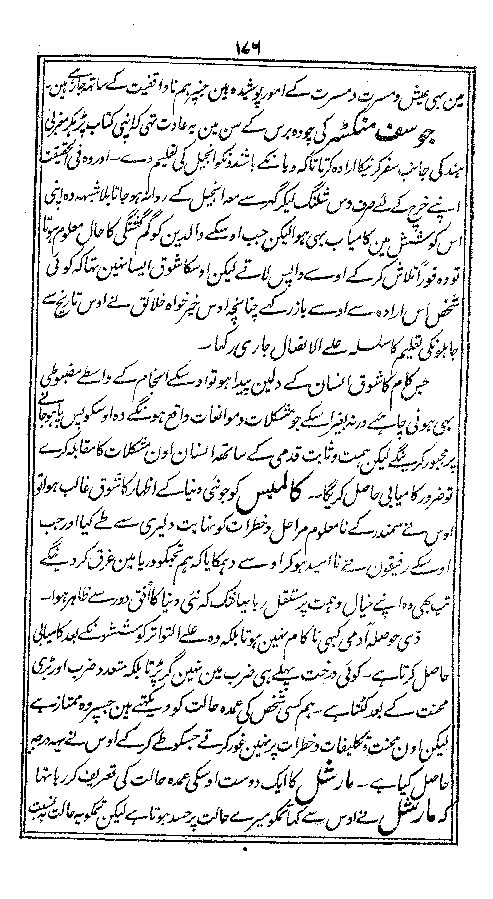 ۱۷۶
مین بھی عیش و مسرت کے امور پوشیدہ ہین جنپر ہم ناواقفیت کے ساتھ جا رہے ہین۔
جوسف منکسٹر کی چودہ برس کے سن مین یہ عادت تھی کہ اپنی کتاب پڑھکر مغربی
ہند کی جانب سفر کرنیکا ارادہ کرتا تاکہ وہانکے باشندونکو انجیل کی تعلیم دے۔ اور وہ فی الحقیقت
اپنے خرچ کے لئے صرف دس شلنگ لیکر گھر سے معہ انجیل کے روانہ ہو جاتا بلاشبہہ وہ اپنی
اس کوشش مین کامیاب بھی ہوا لیکن جب اوسکے والدین کو گم گشتگی کا حال معلوم ہوتا
تو وہ فوراً تلاش کر کے اوسے واپس لاتے لیکن اوسکا شوق ایسا نہین تھا کہ کوئی
شخص اس ارادہ سے اوسے باز رکھے چنانچہ اوس خیر خواہ خلائق نے اوس تاریخ سے
جاہلونکی تعلیم کا سلسلہ علے الاتصال جاری رکھا۔
جس کام کا شوق انسان کے دلمین پیدا ہو تو اوسکے انجام کے واسطے مضبوطی
بھی ہونی چاہئے ورنہ بغیر اسکے جو مشکلات و موانعات واقع ہونگے وہ اوسکو پس پا ہو جانے
پر مجبور کرینگے لیکن ہمت و ثابت قدمی کے ساتھ انسان اون مشکلات کا مقابلہ کرے
تو ضرور کامیابی حاصل کریگا۔ کالمبس کو جو نئی دنیا کے اظہار کا شوق غالب ہوا تو
اوس نے سمندر کے نامعلوم مراحل و خطرات کو نہایت دلیری سے طے کیا اور جب
اوسکے رفیقون نے ناامید ہو کر اوسے دہمکایا کہ ہم تجھکو دریا مین غرق کر دینگے
تب بھی وہ اپنے خیال و ہمت پر مستقل رہا یہانتک کہ نئی دنیا کا افق دور سے ظاہر ہوا۔
ذی حوصلہ آدمی کبھی ناکام نہین ہوتا بلکہ وہ علے التواتر کوششونکے بعد کامیابی
حاصل کرتا ہے۔ کوئی درخت پہلے ہی ضرب مین نہین گر پڑتا بلکہ متعدد ضرب اور بڑی
محنت کے بعد کٹتا ہے۔ ہم کسی شخص کی عمدہ حالت کو دیکھتے ہین جسپر وہ ممتاز ہے
لیکن اون محنت و تکلیفات و خطرات پر نہین غور کرتے جسکو طے کر کے اوس نے یہہ درجہ
حاصل کیا ہے۔ مارشل کا ایک دوست اوسکی عمدہ حالت کی تعریف کر رہا تھا
کہ مارشل نے اوس سے کہا تمکو میرے حالت پر حسد ہوتا ہے لیکن تمکو یہ حالت بہ نسبت